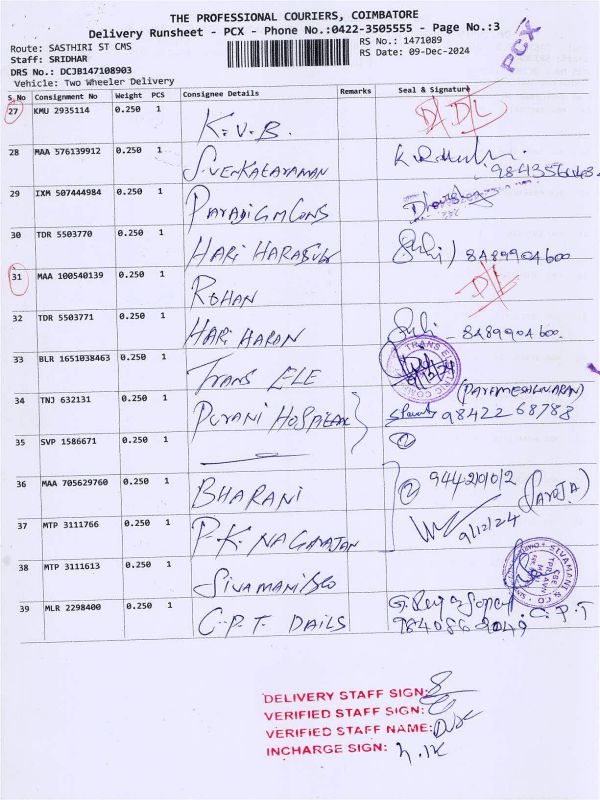 THE PROFESSIONAL COURIERS, COIMBATORE
Delivery Runsheet - PCX - Phone No.:0422-3505555 - Page No.:3
PCX
Route: SASTHIRI ST CMS
RS No.: 1471089
Staff: SRIDHAR
RS Date: 09-Dec-2024
DRS No.: DCJB147108903
Vehicle: Two Wheeler Delivery
S.No Consignment No Weight PCS Consignee Details Remarks Seal & Signature
27 KMU 2935114 0.250 1 K.V.B. D/L D/L
28 MAA 576139912 0.250 1 S.VENKATARAMAN
29 IXM 507444984 0.250 1 PARADIGM CONS
30 TDR 5503770 0.250 1 HARI HARASUDH 8489904600
31 MAA 100540139 0.250 1 ROHAN D/L
32 TDR 5503771 0.250 1 HARI HARAN 8489904600
33 BLR 1651038463 0.250 1 TRANS ELE
(PARAMESHWARAN)
34 TNJ 632131 0.250 1 PURANI HOSPITAL 98422 68788
35 SVP 1586671 0.250 1
36 MAA 705629760 0.250 1 BHARANI 2 944210102 (SAROJA)
37 MTP 3111766 0.250 1 P.K. NAGARAJAN 9/12/24
38 MTP 3111613 0.250 1 SIVAMANI & CO SIVAMANI & CO
39 MLR 2298400 0.250 1 C.P.T. DAILS C.P.T
DELIVERY STAFF SIGN:
VERIFIED STAFF SIGN:
VERIFIED STAFF NAME:
INCHARGE SIGN: